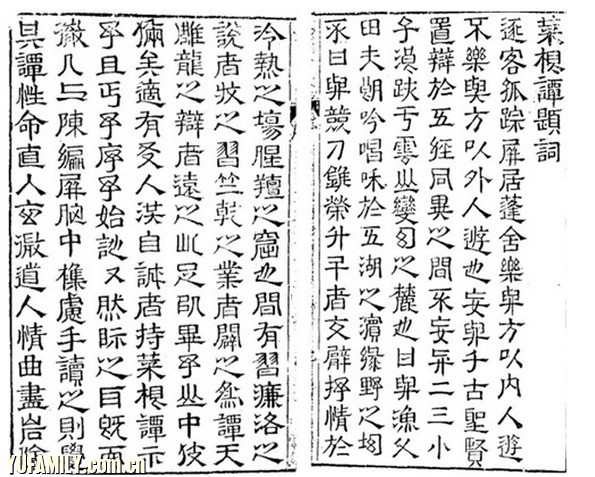 菜根譚題詞
逐客孤踪屏居蓬舍樂與方以内人遊
不樂與方以外人遊也妄與千古聖賢
置辯於五經同異之間不妄與二三小
子浪跡于雲山變幻之麓也日與漁父
田夫朗吟唱咊於五湖之濱綠野之坳
不日與競刀錐榮升斗者交臂抒情於
冷熱之場腥羶之窟也間有習濂洛之
說者牧之習竺乾之業者闢之爲譚天
雕龍之辯者遠之此足以畢予山中伎
倆矣適有友人洪自誠者持菜根譚示
予且丐予序予始訑訑然眎之耳旣而
徹几上陳編屏胸中襍慮手讀之則覺
其譚性命直入玄微道人情曲盡岩險
YUFAMILY.com.cn